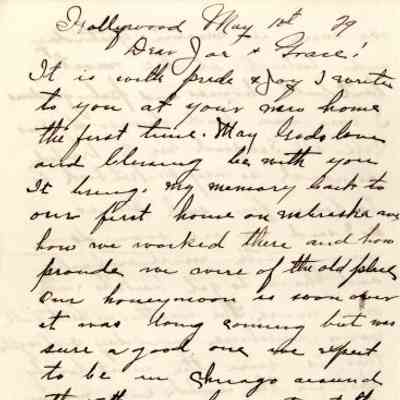 Hollywood May 10th 29
Dear Joe & Grace!
It is with pride & Joy I write
to you at your new home
the first time. May Gods love
and blessing be with you
It brings my memory back to
our first home on nebraska ave
how we worked there and how
proude we were of the old place
Our honeymoon is soon over
it was long coming but was
sure a good one we expect
to be in Chicago around